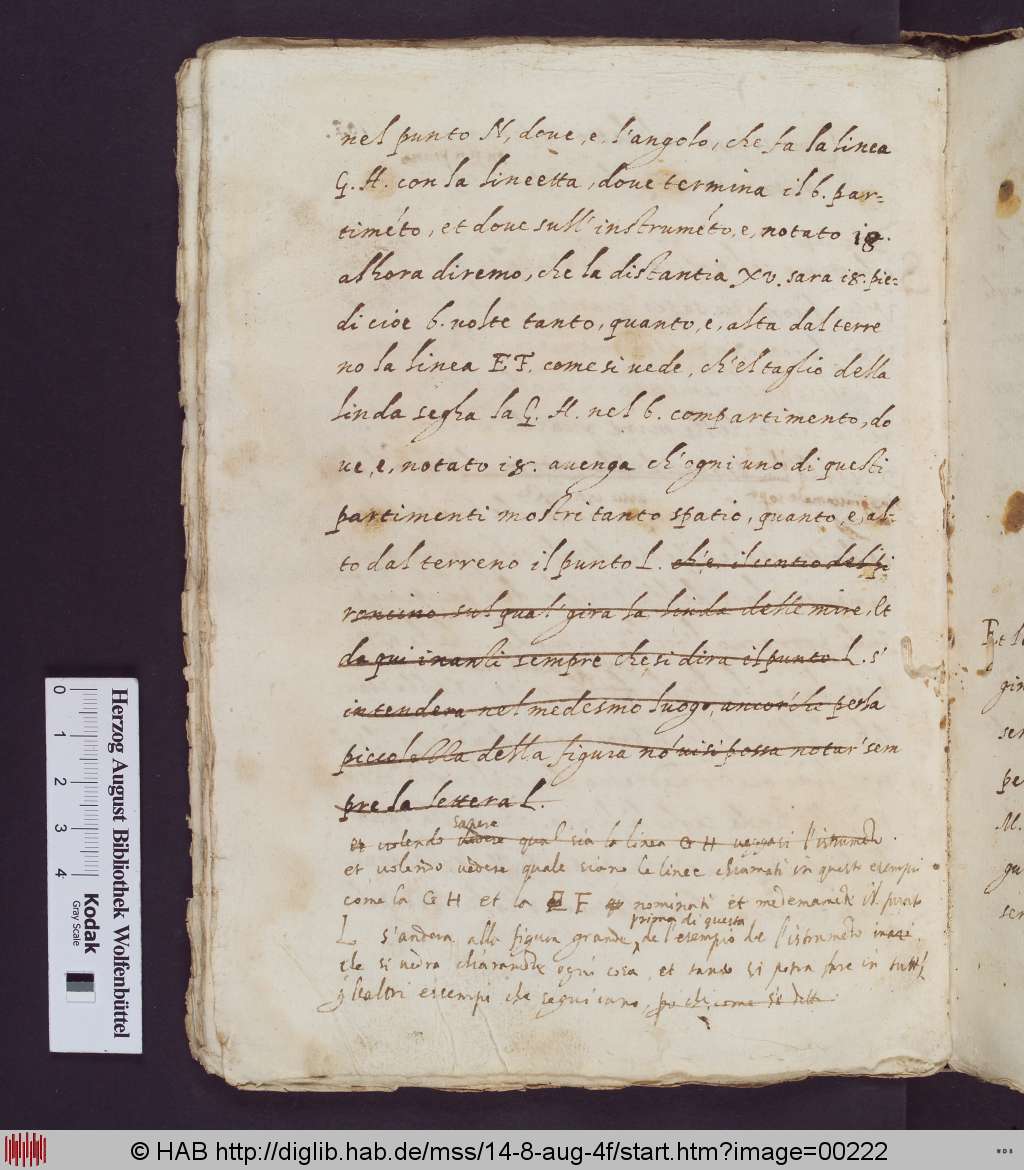 nel punto N, dove, e, l'angolo, che fa la linea
G. H. con la lineetta, dove termina il 6. par-
timéto, et dove sull' instruméto, e, notato 18.
alhora diremo, che la distantia XV. sara 18. pie-
di cioe 6. uolte tanto, quanto, e, alta dal terre
no la linea EF. come si uede, ch'el taglio della
linda segha la G. H. nel 6. compartimento, do
ue, e, notato 18. auenga ch'ogni uno di questi
partimenti mostri tanto spatio, quanto, e, al-
to dal terreno il punto L. ch'e, il centro del pi
roncino sul qual' gira la linda delle mire, Et
da qui inanti sempre che si dira il punto L. s'
intendera nel medesmo luogo, ancor'che per la
della figura nó ui si possa notar' sem
pre la lettera L.
sapere
et uolendo uedere qual sia la linea G H ueggasi l'istrumento
et uolendo uedere quale siano le linee chiamati in questi esempi
come la G H et la E F nominati et il punto
prima di questa
L s'andera alla figura grande, de l'esempio de l'istrumento
che si uedra ogni cosa, et tanto si potra fare in tutti
gli altri essempi che seguitano, come s'è detto.
Et l
gin
ser
pe
M.
gu
ser
0
1
2
3
4
Herzog August Bibliothek Wolfenbüttel
Kodak
Gray Scale
© HAB http://diglib.hab.de/mss/14-8-aug-4f/start.htm?image=00222
WDB